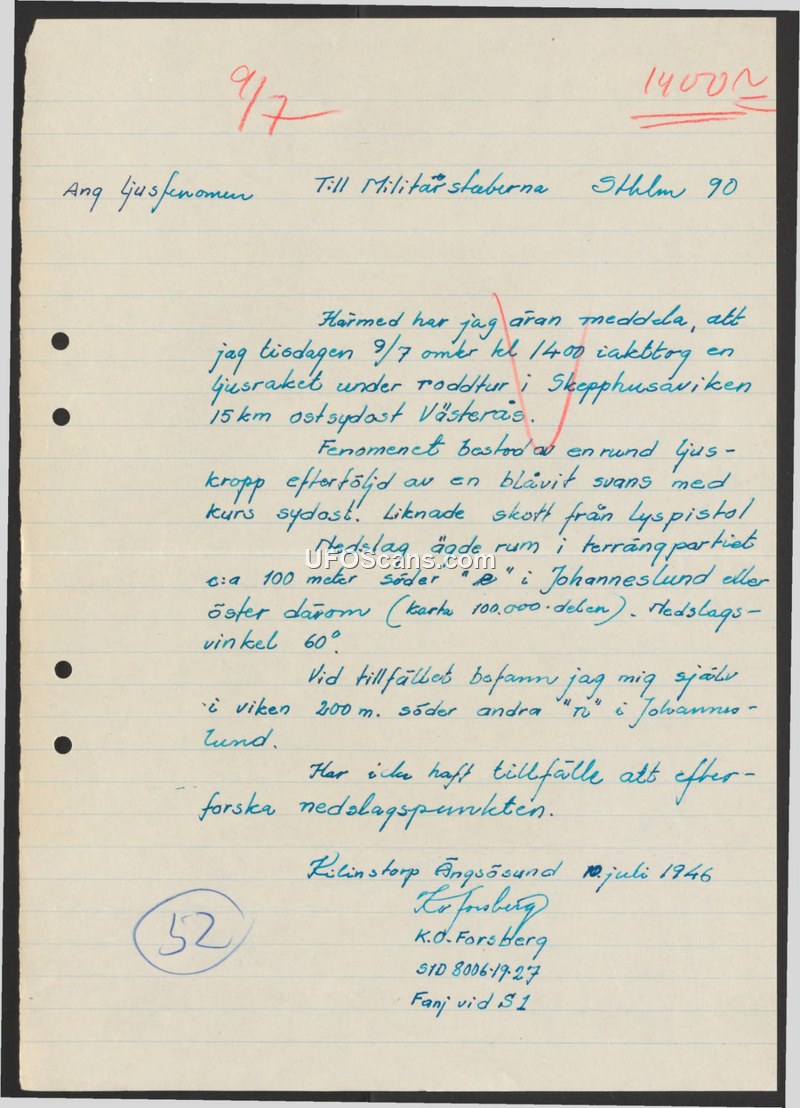 9/7
1400
Ang ljusfenomen Till Militärstaberna Sthlm 90
Härmed har jag äran meddela, att
jag tisdagen 9/7 omkr kl 1400 iakttog en
ljusraket under roddtur i Skepphusaviken
15 km ostsydost Västerås.
Fenomenet bestod av en rund ljus-
kropp efterföljd av en blåvit svans med
kurs sydost. Liknade skott från lyspistol
Nedslag ägde rum i terrängpartiet
UFOScans.com
c:a 100 meter söder "e" i Johanneslund eller
öster därom (karta 100.000-delen). Nedslags-
vinkel 60°.
Vid tillfället befann jag mig själv
i viken 200 m. söder andra "n" i Johannes-
lund.
Har icke haft tillfälle att efter-
forska nedslagspunkten.
Kilinstorp Ängsösund 10. juli 1946
K.O. Forsberg
52
K.O. Forsberg
SID 8006-19-27
Fanj vid S1